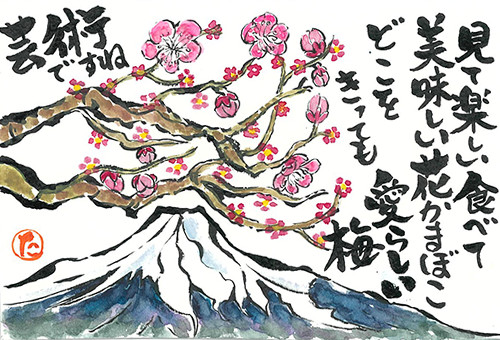 見て楽しい食べて
美味しい花かまぼこ
どこを
きっても
愛らしい
梅
芸術
ですね